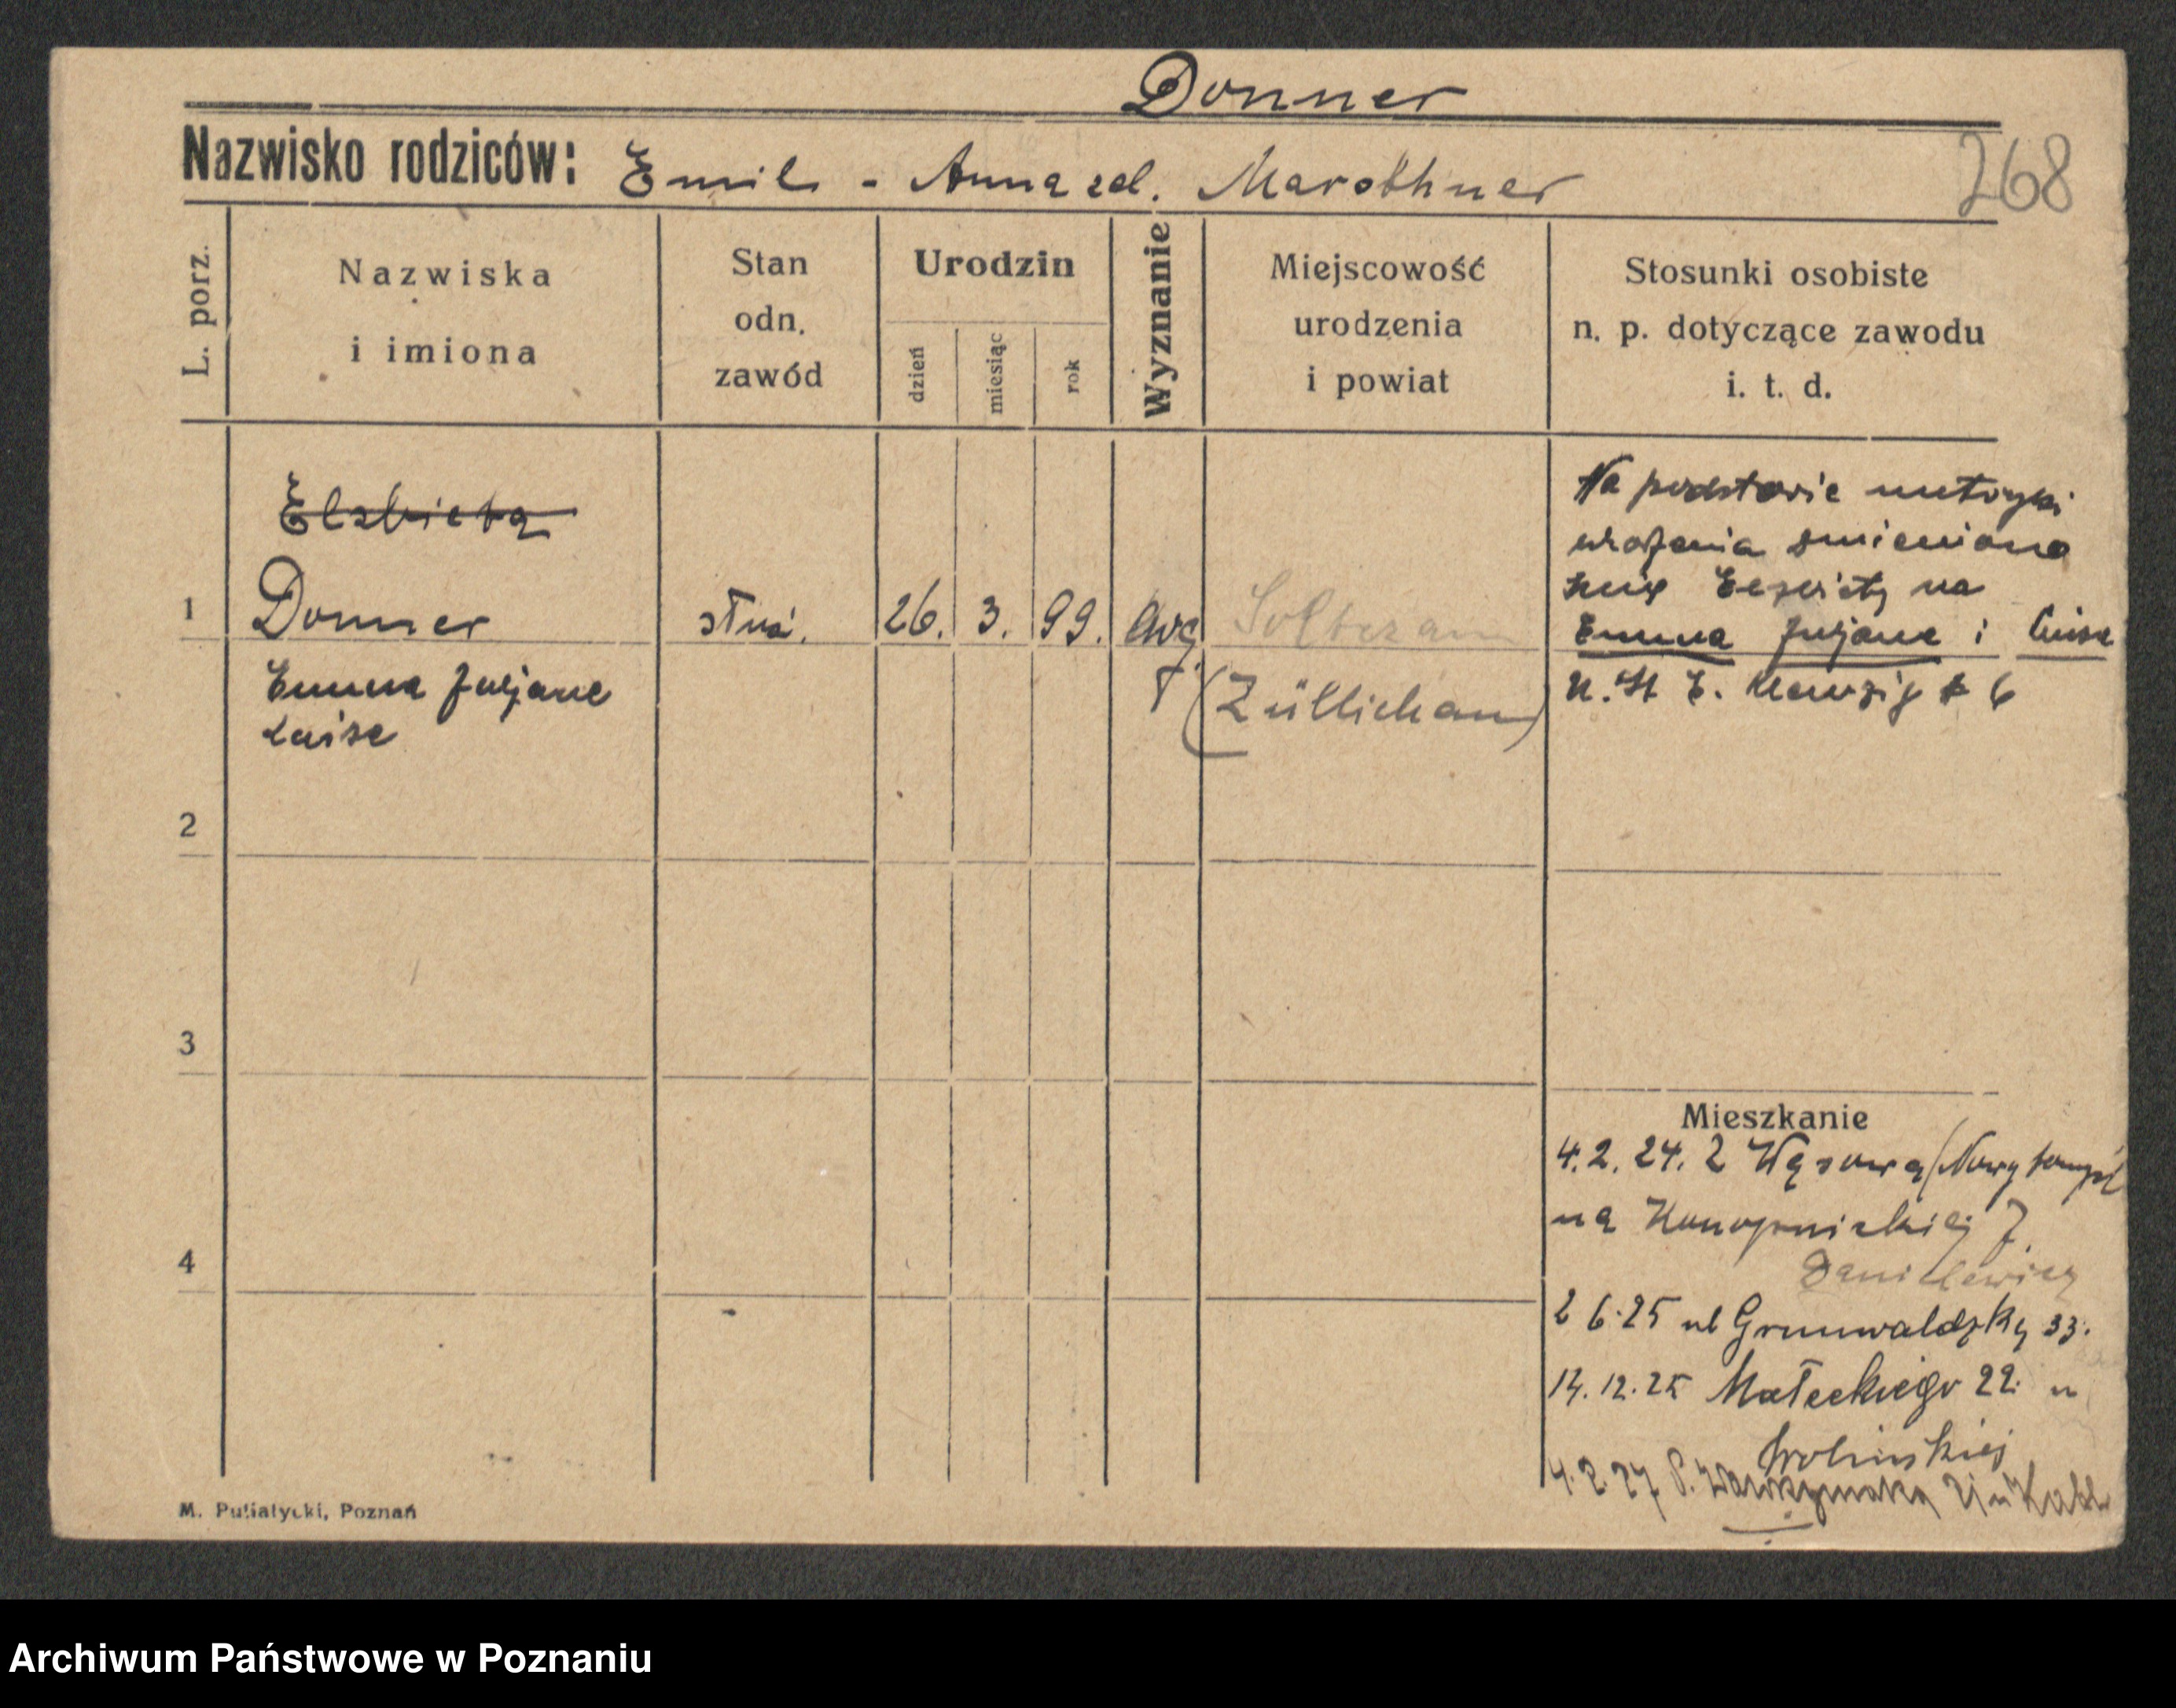 Donner
Nazwisko rodziców: Emil - Anna zd. Marothner
268
L. porz.
Nazwiska
i imiona
Stan
odn.
zawód
Urodzin
dzień
miesiąc
rok
Wyznanie
Miejscowość
urodzenia
i powiat
Stosunki osobiste
n. p. dotyczące zawodu
i. t. d.
Elzbieta
1 Donner
Emma Juljane
Luise
26. 3. 99.
(Züllichau)
Na podstawie metryki
urodzenia zmieniono
imię Elżbiety na
Emma Juljane i Luise
2
3
4
Mieszkanie
4. 2. 24. Z Wąsowa (Nowy tomyśl
na Konopnickiej 7
Danielewicz
2 6. 25 ul Grunwaldzka 33.
14. 12. 25 Małeckiego 22. u
Wolinskiej
4. 2. 27
M. Putiatycki, Poznań
Archiwum Państwowe w Poznaniu